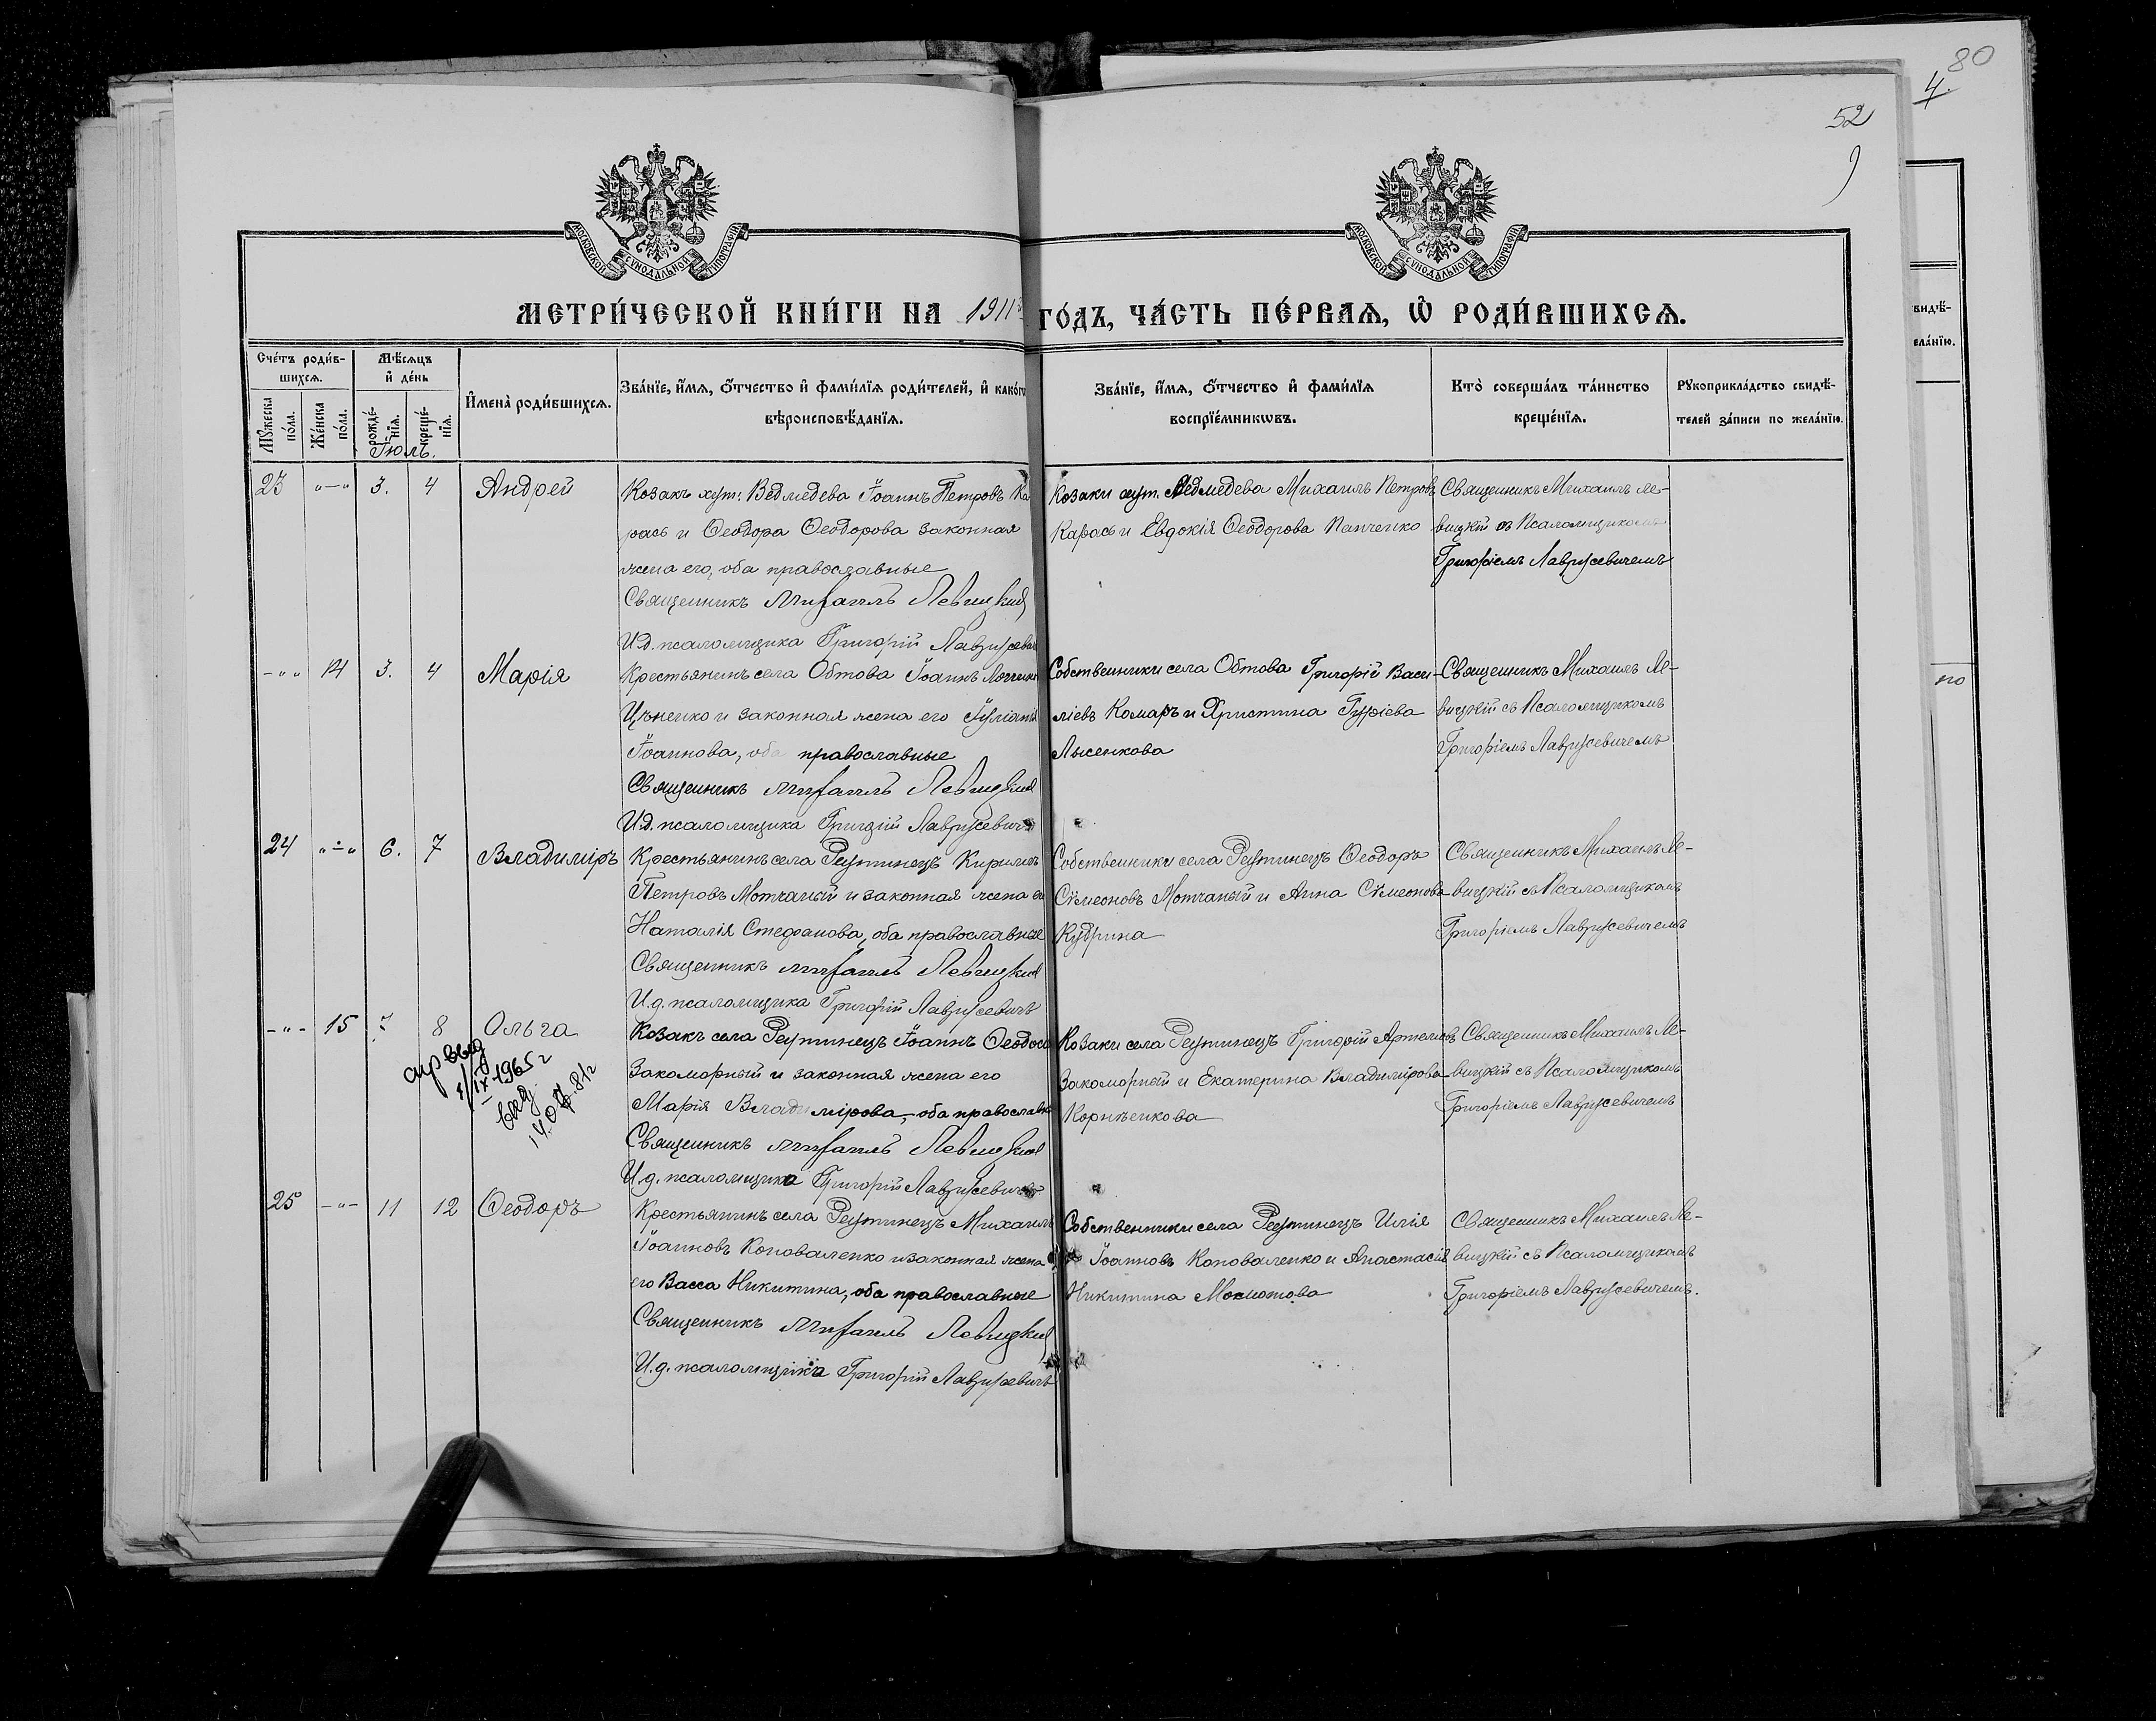 80
4.
52
МОСКОВСКОЙ СѴНОДАЛЬНОЙ ТИПОГРАФІИ
МОСКОВСКОЙ СѴНОДАЛЬНОЙ ТИПОГРАФІИ
МЕТРИ́ЧЕСКОЙ КНИ́ГИ НА 1911 ГО́ДЪ, ЧА́СТЬ ПЕ́РВАѦ, Ѡ҆ РОДИ́ВШИХСѦ.
Сче́тъ роди́в-
шихсѧ.
Мꙋ́жеска по́ла.
Же́нска по́ла.
Мѣ́сѧцъ
и҆ де́нь
рожде́-
нїѧ.
креще́-
нїѧ.
Іюль.
И҆мена̀ роди́вшихсѧ.
Зва́нїе, и҆́мѧ, ѻ҆́тчество и҆ фами́лїѧ роди́телей, и҆ како́гѡ
вѣроисповѣ́данїѧ.
Зва́нїе, и҆́мѧ, ѻ҆́тчество и҆ фами́лїѧ
воспрїе́мникѡвъ.
Кто̀ соверша́лъ та́инство
креще́нїѧ.
Рꙋкоприкла́дство свидѣ́-
телей за́писи по жела́нїю.
свидѣ́-
жела́нїю.
по
23 "—" 3. 4 Андрей
Козакъ хут: Ведмедева Іоаннъ Петровъ Ка
рась и Ѳеодора Ѳеодорова законная
жена его, оба православные
Священникъ Михаилъ Левицкій
И.д. псаломщика Григорій Лаврусевичъ
Козаки хут. Ведмедева Михаилъ Петровъ
Карась и Евдокія Ѳеодорова Панченко
Священникъ Михаилъ Ле-
вицкій съ Псаломщикомъ
Григоріемъ Лаврусевичемъ
-"- 14 3. 4 Марія
Крестьянинъ села Обтова Іоаннъ
и законная жена его Іуліанія
Іоаннова, оба православные
Священникъ Михаилъ Левицкій
И.д. псаломщика Григорій Лаврусевичъ
Собственники села Обтова Григорій Васи-
ліевъ Комаръ и Христина Гуріева
Лысенкова
Священникъ Михаилъ Ле-
вицкій съ Псаломщикомъ
Григоріемъ Лаврусевичемъ
24 "—" 6. 7 Владиміръ
Крестьянинъ села Реутинецъ Кириллъ
Петровъ Мотчаный и законная жена его
Наталія Стефанова, оба православные
Священникъ Михаилъ Левицкій
И.д. псаломщика Григорій Лаврусевичъ
Собственники села Реутинецъ Ѳеодоръ
Сѵмеоновъ Мотчаный и Анна Сѵмеонова
Кудрина
Священникъ Михаилъ Ле-
вицкій съ Псаломщикомъ
Григоріемъ Лаврусевичемъ
-"- 15 7. 8 Ольга
выд
1/IX 1965 г
выд.
Козакъ села Реутинецъ Іоаннъ Ѳеодосі
Закоморный и законная жена его
Марія Владимірова, оба православн
Священникъ Михаилъ Левицкій
И.д. псаломщика Григорій Лаврусевичъ
Козаки села Реутинецъ Григорій Артемовъ
Закоморный и Екатерина Владимірова
Корнѣенкова
Священникъ Михаилъ Ле-
вицкій съ Псаломщикомъ
Григоріемъ Лаврусевичемъ
25 -"- 11 12 Ѳеодоръ
Крестьянинъ села Реутинецъ Михаилъ
Іоанновъ Коноваленко и законная жена
его Васса Никитина, оба православные
Священникъ Михаилъ Левицкій
И.д. псаломщика Григорій Лаврусевичъ
Собственники села Реутинецъ Илія
Іоанновъ Коноваленко и Анастасія
Никитина
Священникъ Михаилъ Ле-
вицкій съ Псаломщикомъ
Григоріемъ Лаврусевичемъ.